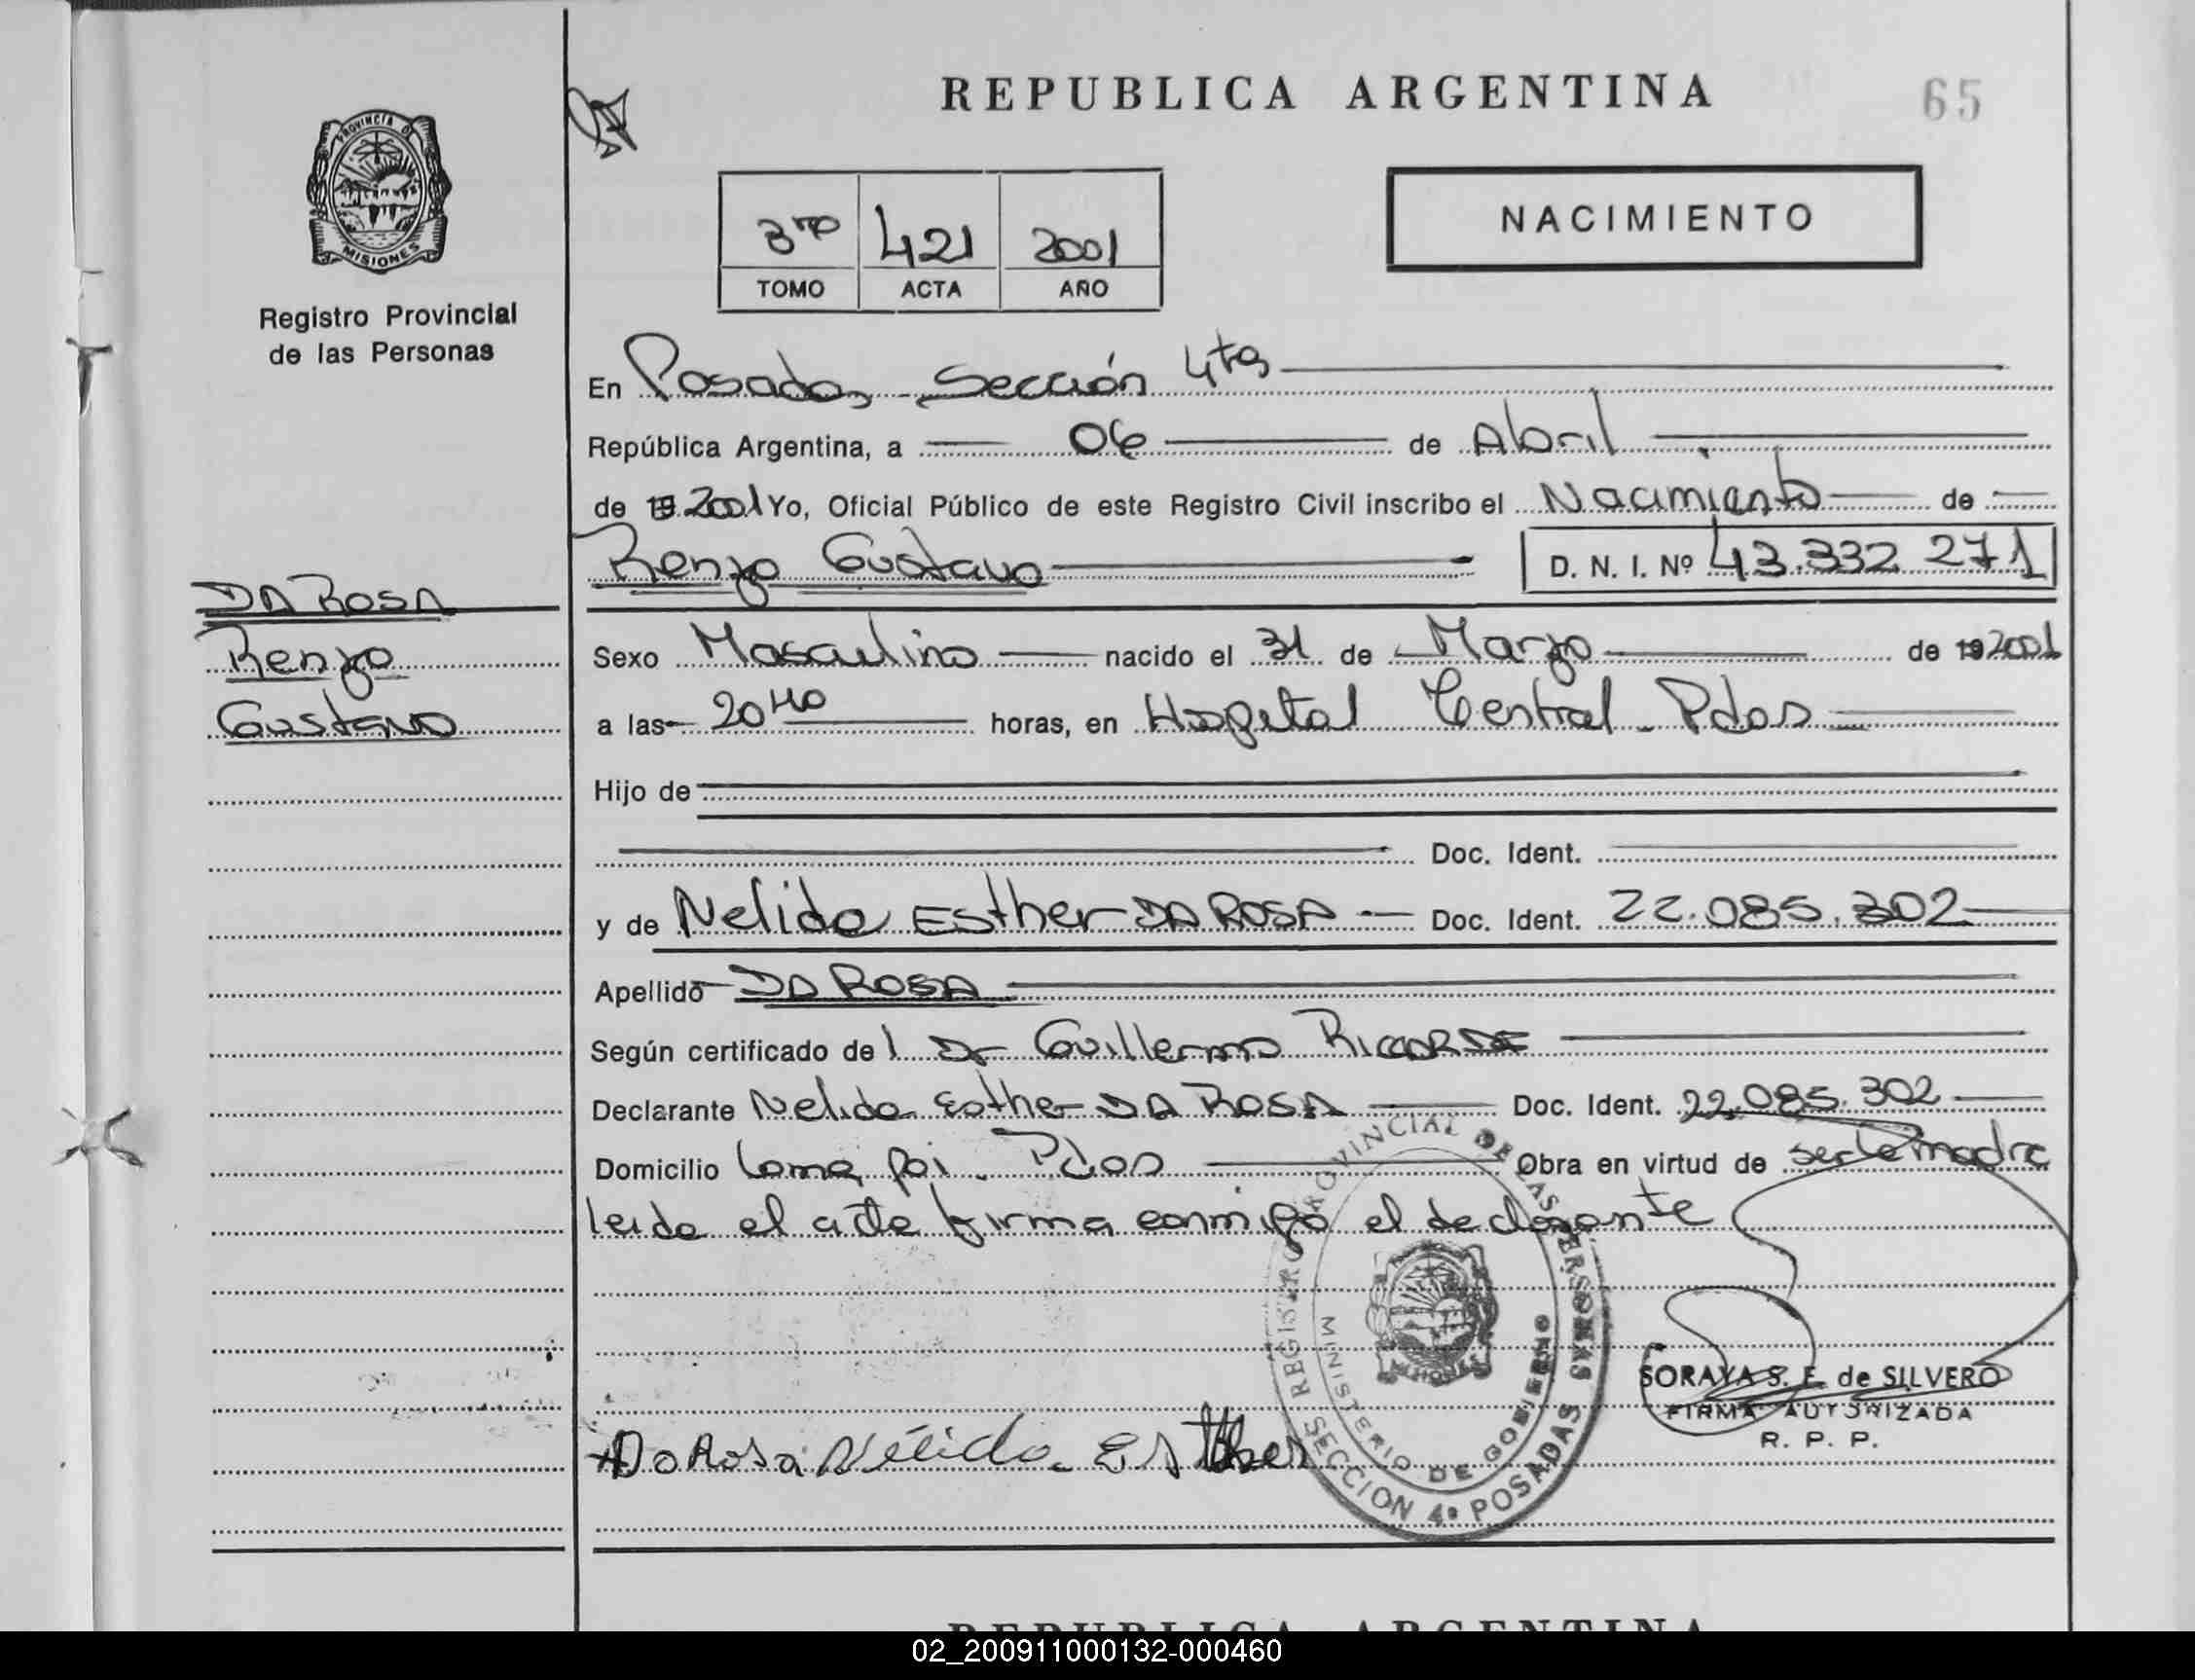 REPUBLICA ARGENTINA
65
PROVINCIA DE
MISIONES
Registro Provincial
de las Personas
NACIMIENTO
3ro 421 2001
TOMO ACTA AÑO
En Posadas, Sección 4ta
República Argentina, a 06 de Abril
de 19 2001 Yo, Oficial Público de este Registro Civil inscribo el Nacimiento de
Renzo Gustavo D. N. I. Nº 43.332.271
DA ROSA
Renzo
Gustavo
Sexo Masculino nacido el 31 de Marzo de 19 2001
a las 20 40 horas, en Hospital Central Pdas
Hijo de
Doc. Ident.
y de Nelida Esther DA ROSA Doc. Ident. 22.085.302
Apellido DA ROSA
Según certificado del Dr Guillermo
Declarante Nelida Esther DA ROSA Doc. Ident. 22.085.302
Domicilio Loma Poi. Pdas Obra en virtud de ser la madre
leida el acta firma conmigo el declarante
REGISTRO PROVINCIAL DE LAS PERSONAS
MINISTERIO DE GOBIERNO
SECCION 4ª POSADAS
MISIONES
SORAYA S. E. de SILVERO
FIRMA AUTORIZADA
R. P. P.
Da Rosa Nélida Esther
REPUBLICA ARGENTINA
02_200911000132-000460